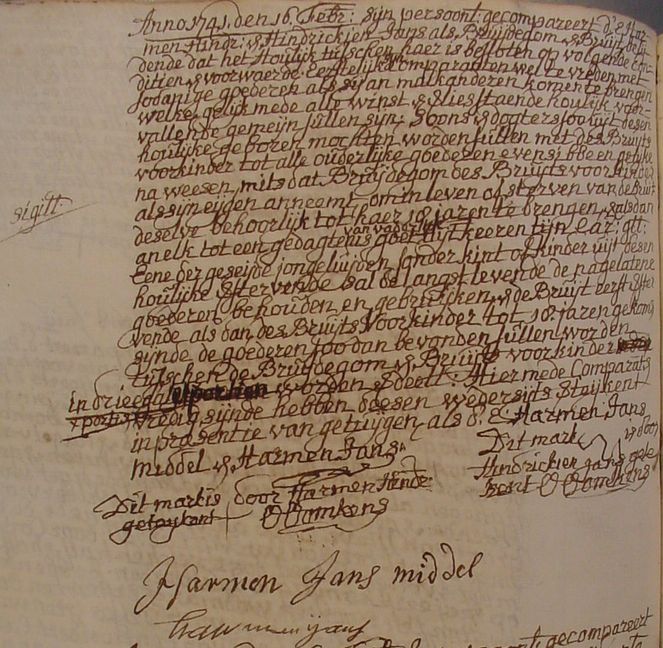 Anno 1741 den 16. Febr: sijn persoonl: gecompareert d'E Har-
men Hindr: & Hindrickien Jans als Bruijdegom & Bruijt, belij-
dende dat het Houlijk tusschen haer is besloten op volgende Con-
ditien & voorwaerde. Eerstelijk Comparanten wel te vreden met
sodanige goederen als sij aan malkanderen komen te brengen
welke gelijk mede alle winst & verlies staende houlijk voor-
vallende gemeijn sullen sijn. Soons & dogters soo uijt desen
houlijke geboren mochten worden sullen met des Bruijts
voorkinder tot alle ouderlijke goederen even sibbe en gelijke
na weesen, mits dat Bruijdegom des Bruijts voorkinder
als sijn eijgen anneemt, om in leven of sterven van de Bruijt
deselve behoorlijk tot haer 18 jaren te brengen, & als dan
van vaderlijk
sigilt.
an elk tot een gedagtenis goet uijtkeeren tijn Car: glt:
Eene der geseijde jongeluijden sonder kint of kinder uijt desen
houlijke stervende sal de langstlevende de nagelatene
goederen behouden en gebruijcken, & de Bruijt eerst ster-
vende als dan des Bruijts Voorkinder tot 18 jaren gekomen
sijnde de goederen soo dan bevonden sullen worden
tusschen de Bruijdegom & Bruijts voorkinder
in drie worden & deelt: Hiermede Comparanten
& portie vredig sijnde hebben deesen wedersijts & teijkent
in presentie van getuijgen, als d'E Harmen Jans
middel & Harmen Jans
Dit mark is door Harmen Hindr
getejkent
Dit mark & door
Hindrickien Jans gete
kent
Harmen Jans middel
Harmen jans
gecompareert